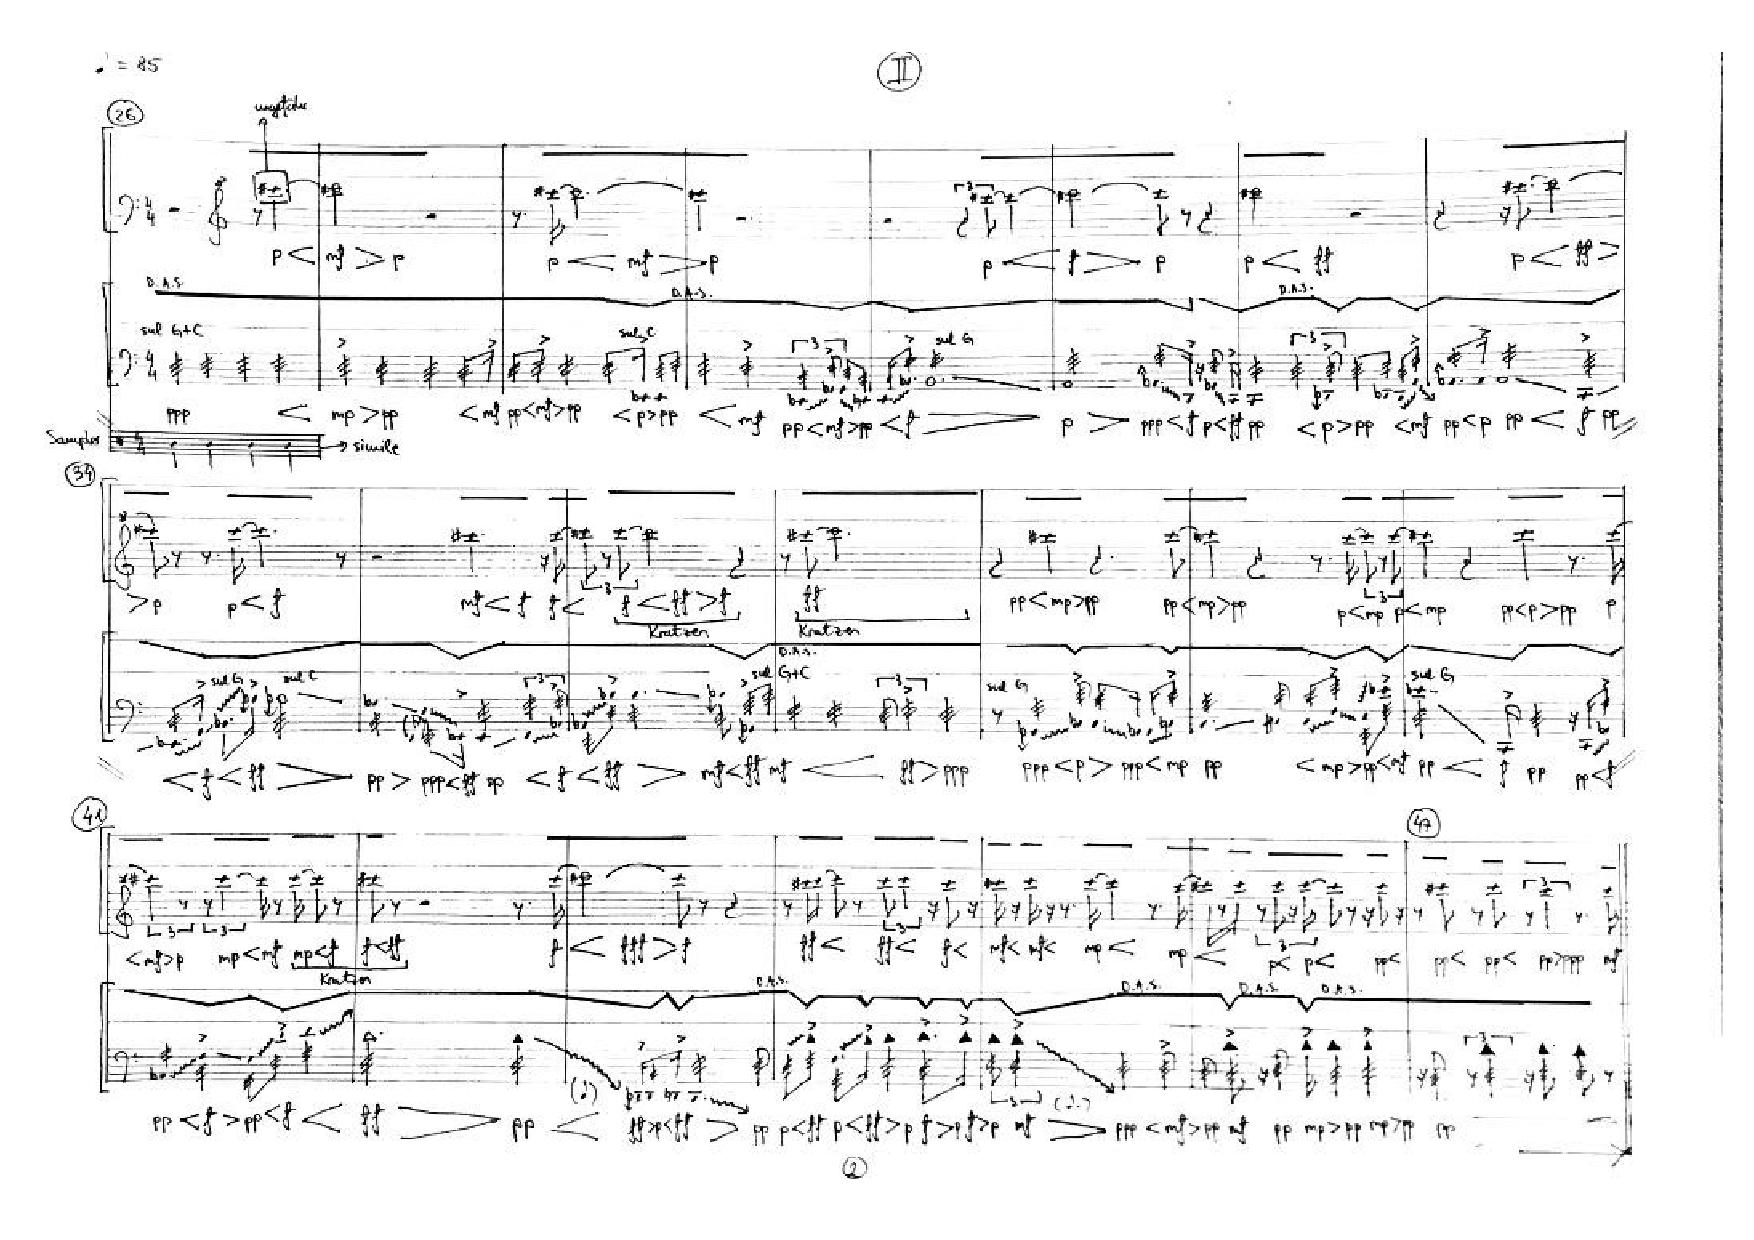 ♩ = 85
II
26
p < mf > p p < mf > p p < f > p p < ff p < ff >
D.A.S. D.A.S. D.A.S.
sul G+C sul C sul G
3 3
ppp < mp > pp < mf pp < mf > pp < p > pp < mf pp < mf > pp < f > p > ppp < f p < ff pp < p > pp < mf pp < p pp < f pp
Sampler simile
34
> p p < f mf < f f < f < ff > f ff pp < mp > pp pp < mp > pp p < mp p < mp pp < p > pp p
3 3
Kratzen Kratzen
D.A.S.
sul G sul C sul G+C sul G sul G
3 3
< f < ff > pp > ppp < ff pp < f < ff > mf < ff mf < ff > ppp ppp < p > ppp < mp pp < mp > pp < mf pp < f pp pp < f
41 47
3 3 3 3 3
< mf > p mp < mf mp < f f < ff f < fff > f ff < ff < f < mf < mf < mp < mp < p < p < pp < pp < pp < pp > ppp mf
Kratzen
D.A.S. D.A.S. D.A.S. D.A.S.
3 3
pp < f > pp < f < ff > pp < ff > p < ff > pp p < ff p < ff > p f > p f > p mf > ppp < mf > pp mf pp mp > pp mp > pp pp
2